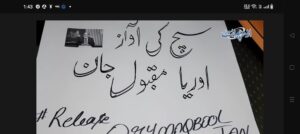 1:43
سچ کی آواز
اوریا مقبول جان
#Release
ORYAMAQBOOL
JAN